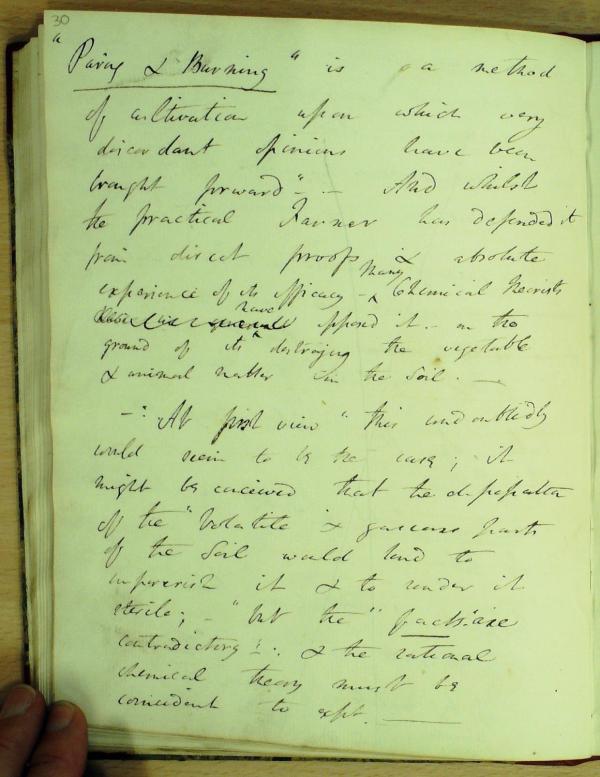 30
"Paring & Burning" is a method
of cultivation upon which very
discordant opinions have been
brought forward" – – And whilst
the practical Farmer has defended it
from direct proofs & absolute
experience of its efficacy – many Chemical theorists
have opposed it – on the
ground of its destroying the vegetable
& animal matter in the Soil. –
–: At first view "this undoubtedly
would seem to be the case; it
might be conceived that the dissipation
of the "Volatile & gaseous parts
of the Soil would tend to
impoverish it & to render it
sterile; – "but the" facts are
contradictory!: & the rational
chemical theory must be
coincident to expt. –